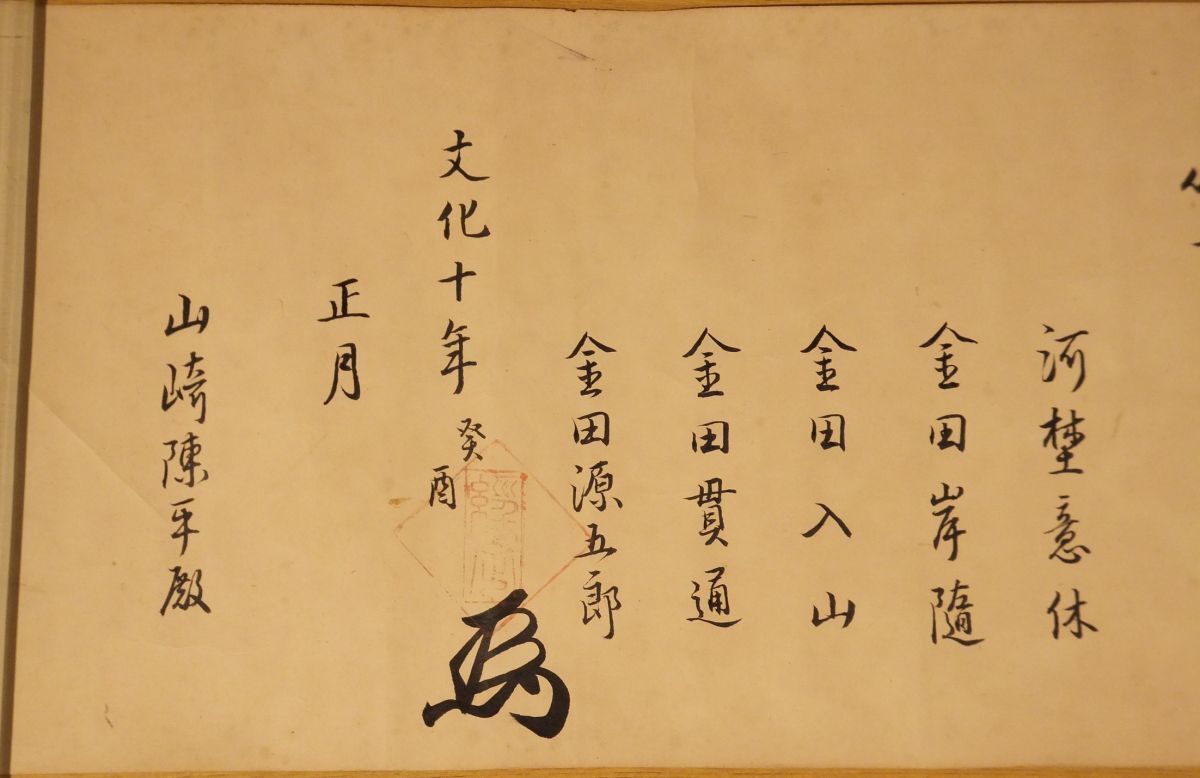 河埜意休
金田岸隨
金田入山
金田貫通
金田源五郎
文化十年癸酉
正月
山崎陳平殿